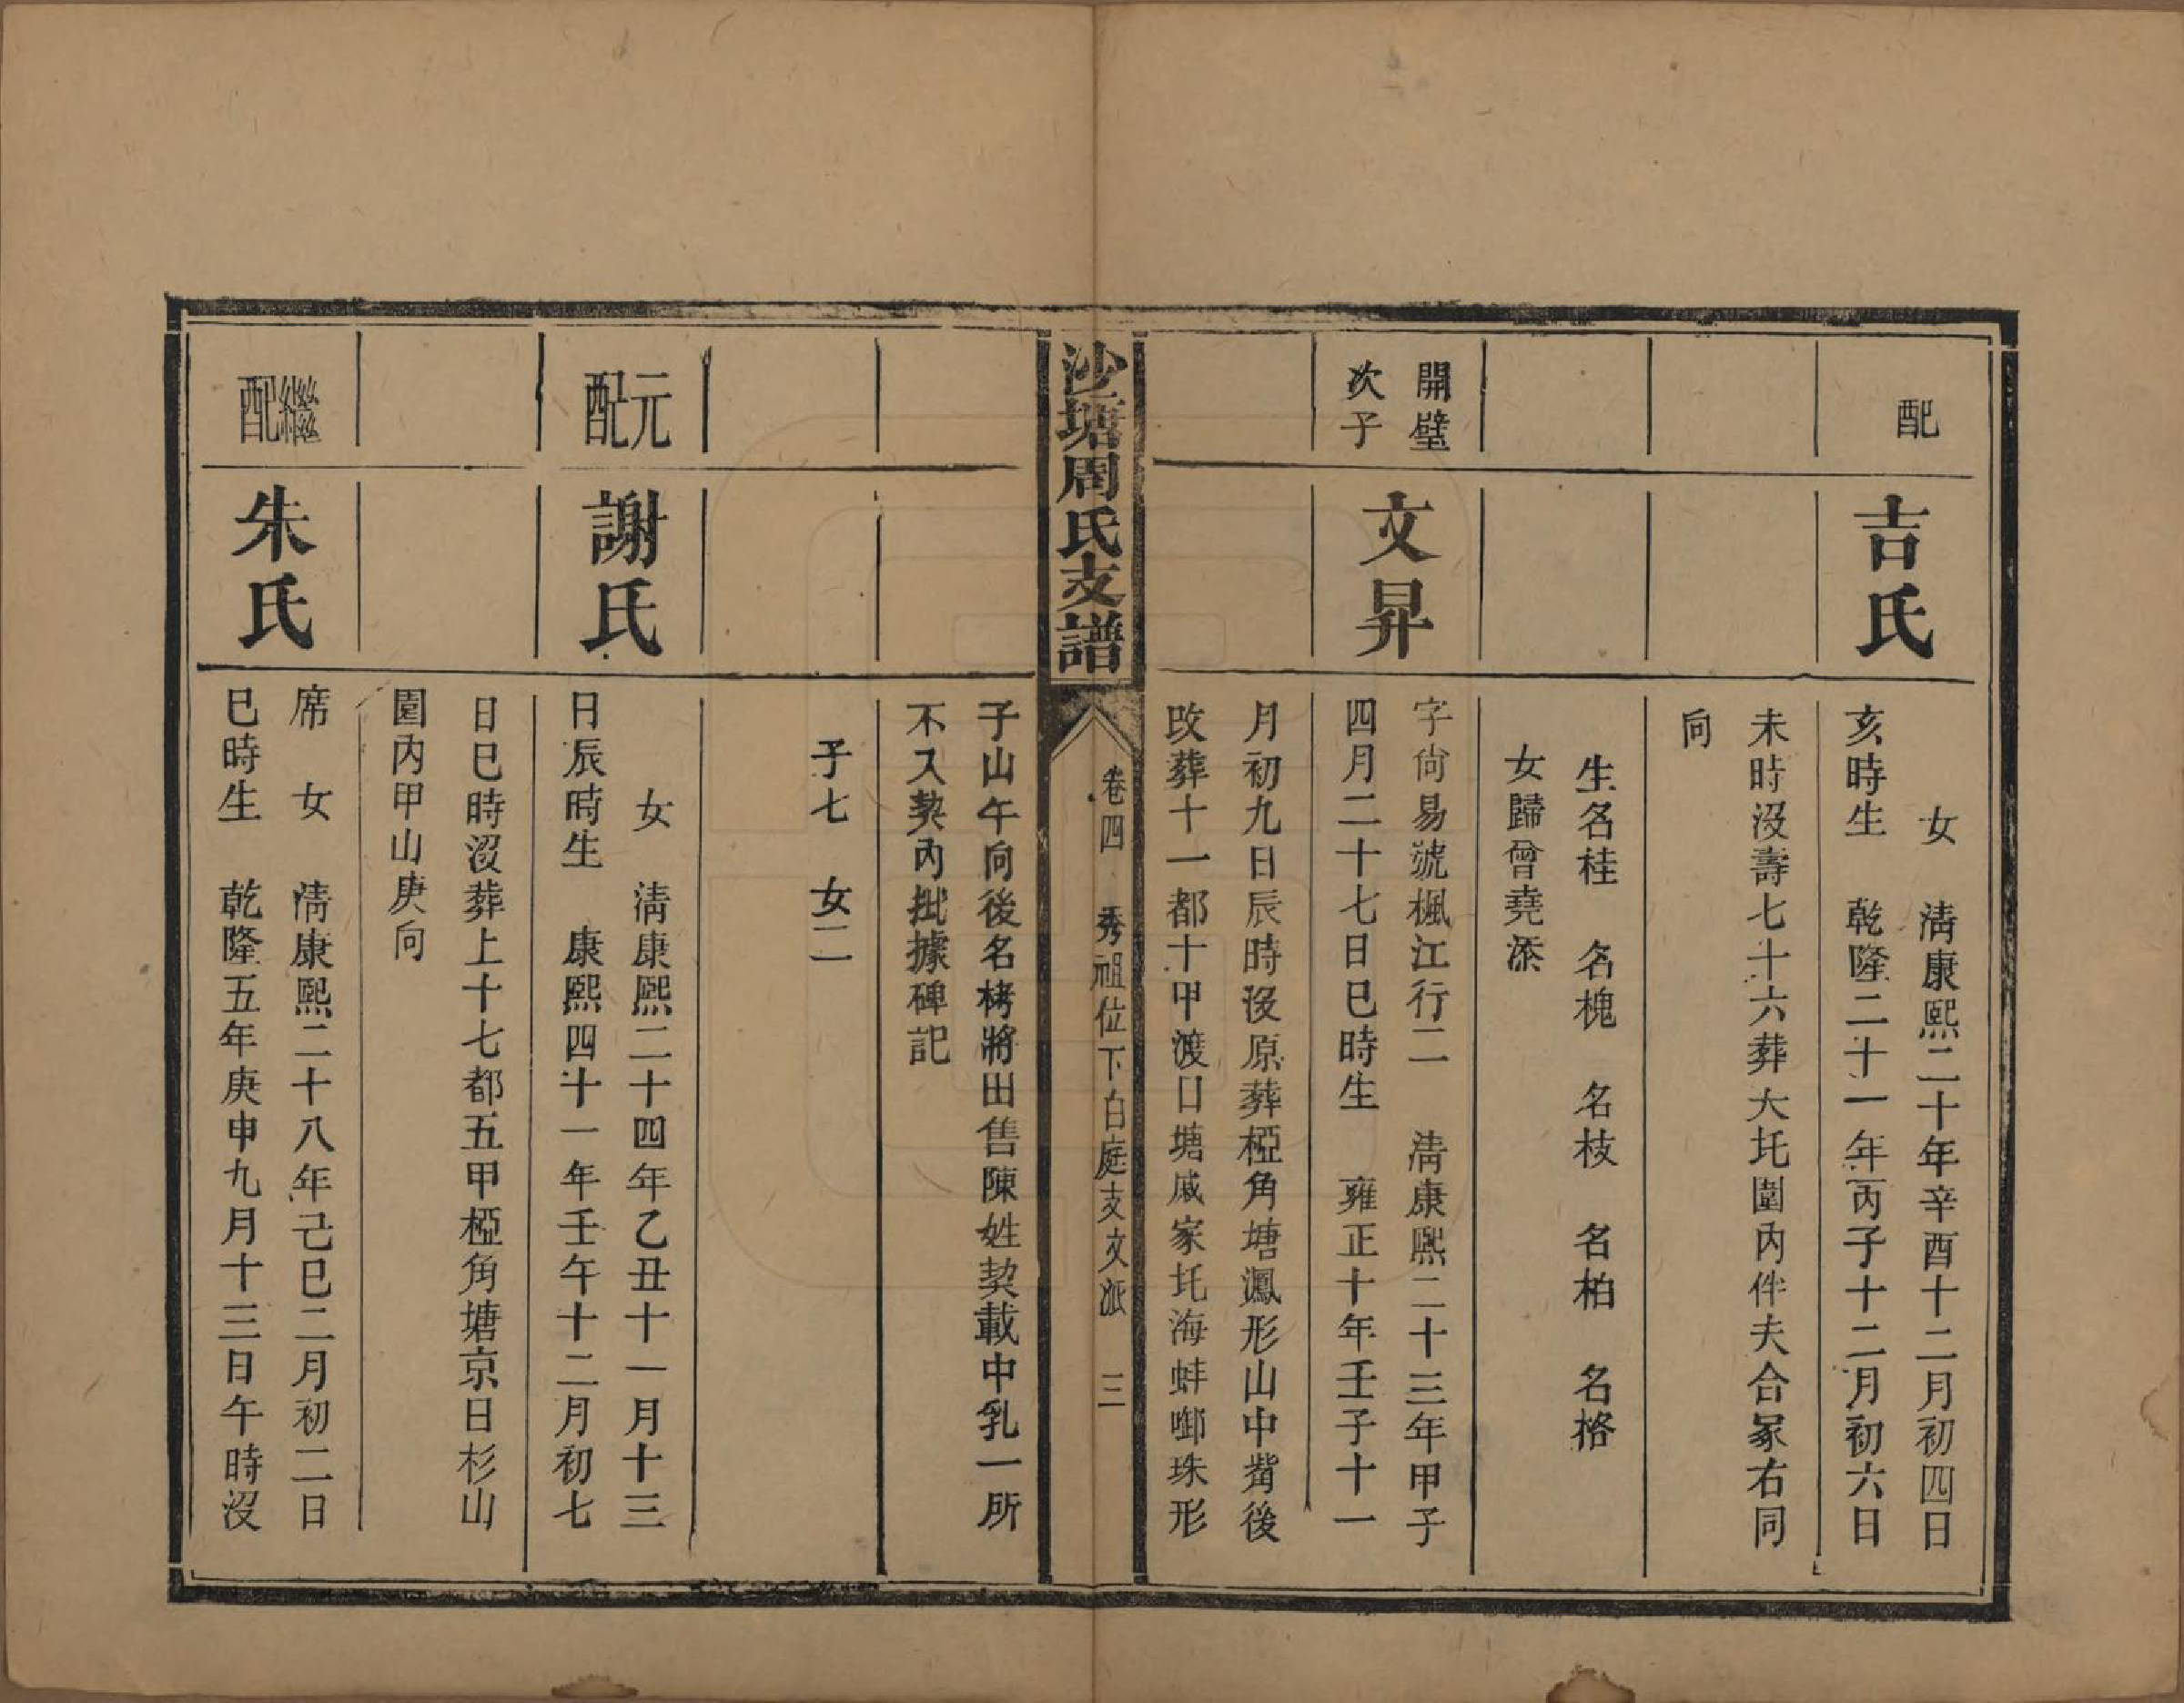 配
吉氏
女　清康熙二十年辛酉十二月初四日
亥時生　乾隆二十一年丙子十二月初六日
未時沒壽七十六葬大圫園內伴夫合冢右同
向
生名桂　名槐　名枝　名柏　名格
女歸曾堯添
開璧
次子
文昇
字尙易號楓江行二　清康熙二十三年甲子
四月二十七日巳時生　雍正十年壬子十一
月初九日辰時沒原葬椏角塘鳳形山中嘴後
改葬十一都十甲渡口塘戚家圫海蚌啣珠形
沙塘周氏支譜
卷四　秀祖位下白庭支文派　三
子山午向後名栲將田售陳姓契載中乳一所
不入契內批據碑記
子七　女二
元
配
謝氏
女　清康熙二十四年乙丑十一月十三
日辰時生　康熙四十一年壬午十二月初七
日巳時沒葬上十七都五甲椏角塘京日杉山
園內甲山庚向
繼
配
朱氏
席　女　清康熙二十八年己巳二月初二日
巳時生　乾隆五年庚申九月十三日午時沒